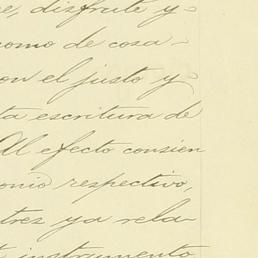 e, disfrute y-
como de cosa-
on el justo y-
ta escritura de
Al efecto consien
onio respectivo,
tres ya rela-
instrumento